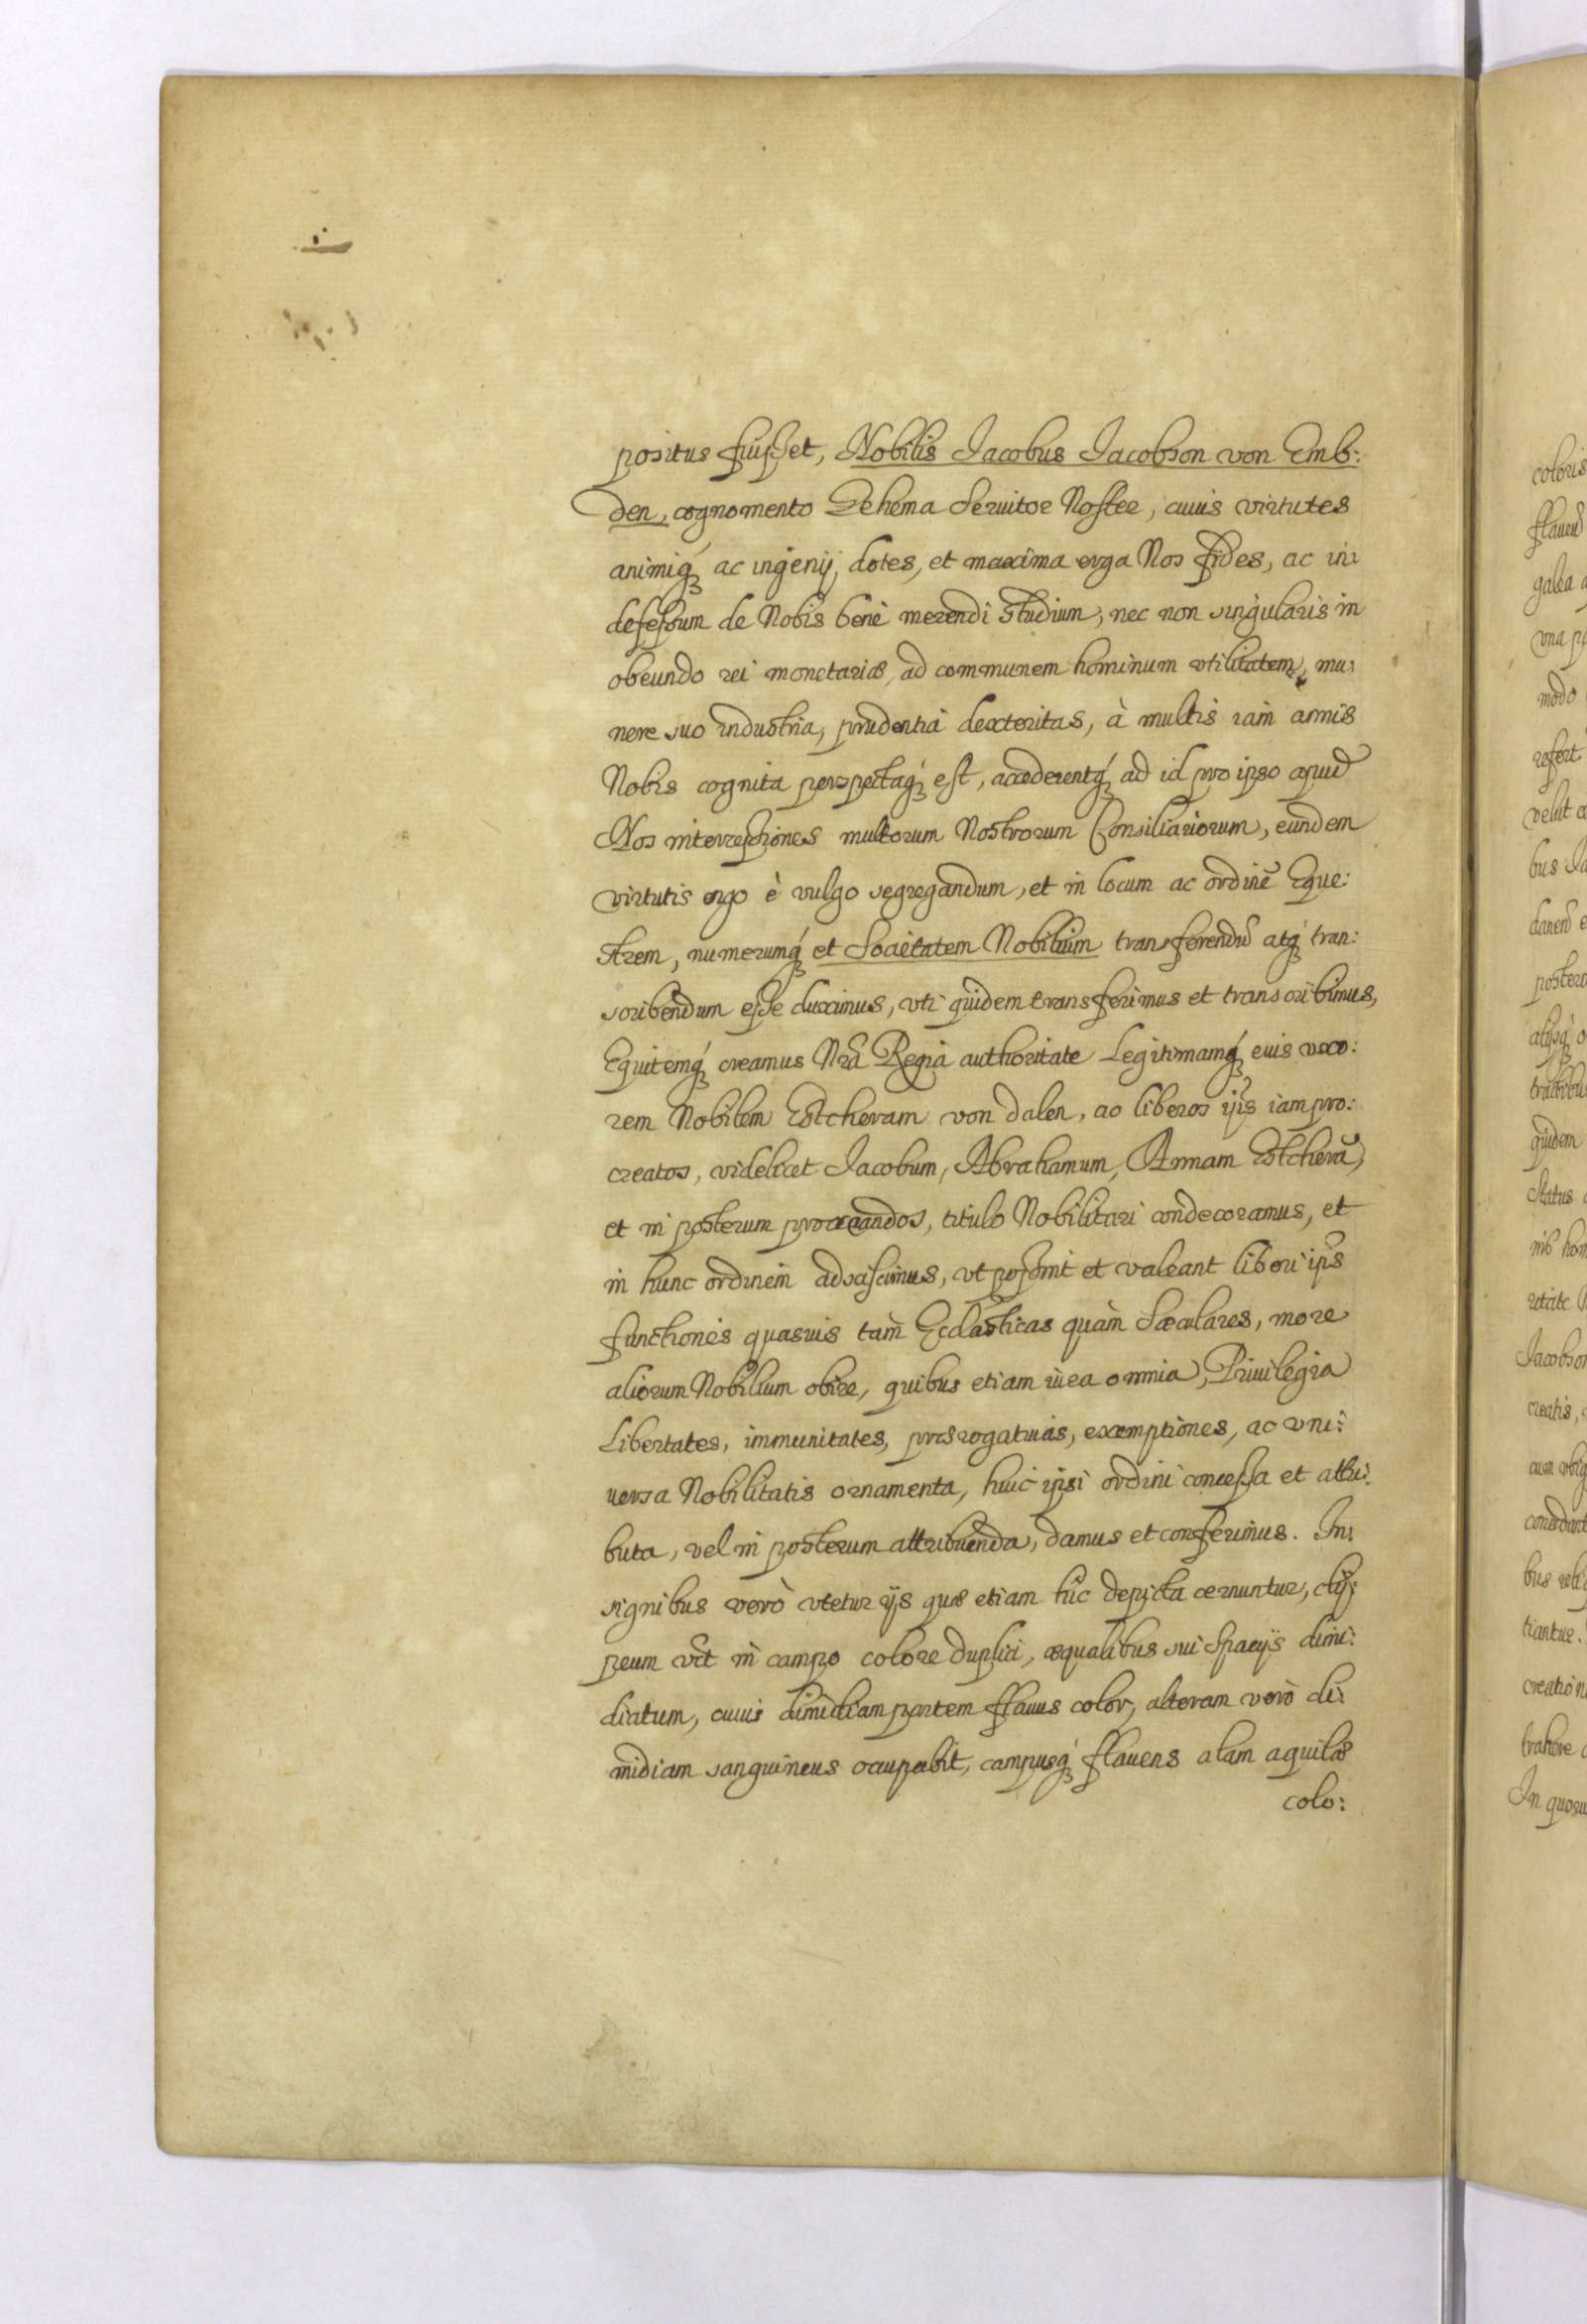 positus fuisset, Nobilis Jacobus Jacobson von Emb:
den, cognomento Gehema Seruitor Noster, cuius virtutes
animiq́ꝫ ac ingenij dotes, et maxima erga Nos fides, ac in:
defessum de Nobis benè merendi studium, nec non singularis in
obeundo rei monetariæ, ad communem hominum vtilitatem, mu:
nere suo industria, prudentia dexteritas, à multis iam annis
Nobis cognita perspectaq́ꝫ est, accederentq́ꝫ ad id pro ipso apud
Nos intercessiones multorum Nostrorum Consiliariorum, eundem
virtutis ergo è vulgo segregandum, et in locum ac ordinẽ Eque:
strem, numerumq́ꝫ et Societatem Nobilium transferendũ atq́ꝫ tran:
scribendum esse duximus, vti quidem transferimus et transcribimus,
Equitemq́ꝫ creamus Nrã Regia authoritate Legitimamq́ꝫ eius vxo:
rem Nobilem Estcheram von dalen, ac liberos ijs iam pro:
creatos, videlicet Jacobum, Abrahamum, Annam Estcherã,
et in posterum procreandos, titulo Nobilitari condecoramus, et
in hunc ordinem adsciscimus, vt possint et valeant liberi ipẽ
functiones quasuis tam Ecclãsticas quàm Sæculares, more
aliorum Nobilium obire, quibus etiam iura omnia, Priuilegia
Libertates, immunitates, prærogatiuas, exemptiones, ac vni:
uersa Nobilitatis ornamenta, huic ipsi ordini concessa et attri:
buta, vel in posterum attribuenda, damus et conferimus. In:
signibus verò vtetur ijs quæ etiam hîc depicta cernuntur, cly:
peum vct in campo colore duplici, æqualibus sui spacijs dimi:
diatum, cuius dimidiam partem flauus color, alteram verò di:
midiam sanguineus occupabit, campusq́ꝫ flauens alam aquilæ
colo:
coloris
flauend
galea
vna
modo
refert
velut
bus
danend
postero
alijsq́ꝫ
quidem
status
Jacobson
creatis,
bus
tiantur.
creation
trahere
In quoru